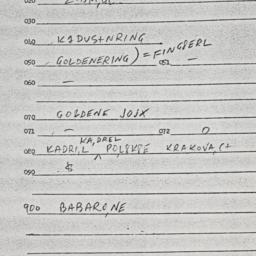 020
030
040 KADUSTNRING
050 GOLDENERING ) = FINGPERL
051 —
060 —
070 GOLDENE JOJX
071 — 072 0
KA,DREL
080 KADRI,L POLSKIE KRAKOVA,C+
090 $
900 BABARO,NE